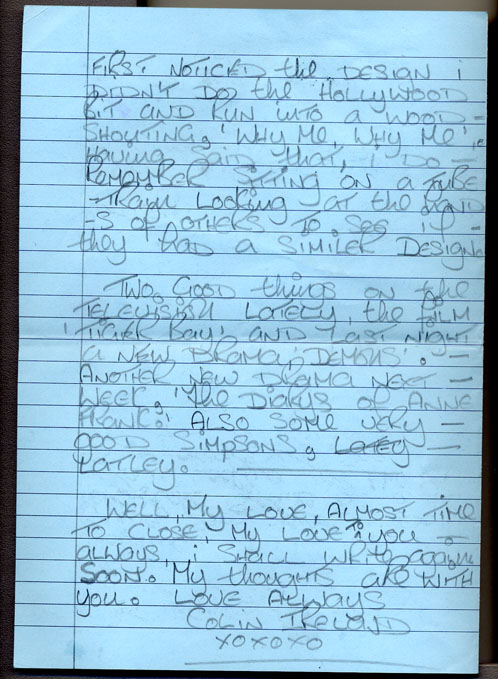 FIRST NOTICED the DESIGN i
DIDN'T DO the HOLLYWOOD
BIT AND RUN INTO A WOOD -
SHOUTING, 'WHY ME, WHY ME'.
HAVING SAID that, i DO -
REMEMBER SITTING ON A TUBE
-TRAIN LOOKING AT the HAND
-S OF OTHERS TO SEE IF -
they HAD A SIMILER DESIGN.
TWO GOOD things ON the
TELEVISION LATELY, the FILM
'TIGER BAY' AND LAST NIGHT
A NEW DRAMA, 'DEMONS'. -
ANOTHER NEW DRAMA NEXT -
WEEK, 'the DIARYS OF ANNE
FRANK.' ALSO SOME VERY -
GOOD SIMPSONS, LATEY -
LATLEY.
WELL, MY LOVE, ALMOST TIME
TO CLOSE, MY LOVE TO YOU -
ALWAYS, i SHALL WRITE AGAIN
SOON. MY thoughts ARE WITH
YOU. LOVE ALWAYS
COLIN IRELAND
XOXOXO